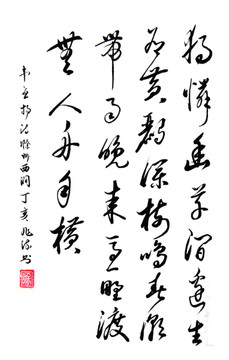 獨憐幽草澗邊生
上有黄鸝深樹鳴春潮
帶雨晚来急野渡
無人舟自横
韋應物詩滁州西澗丁亥